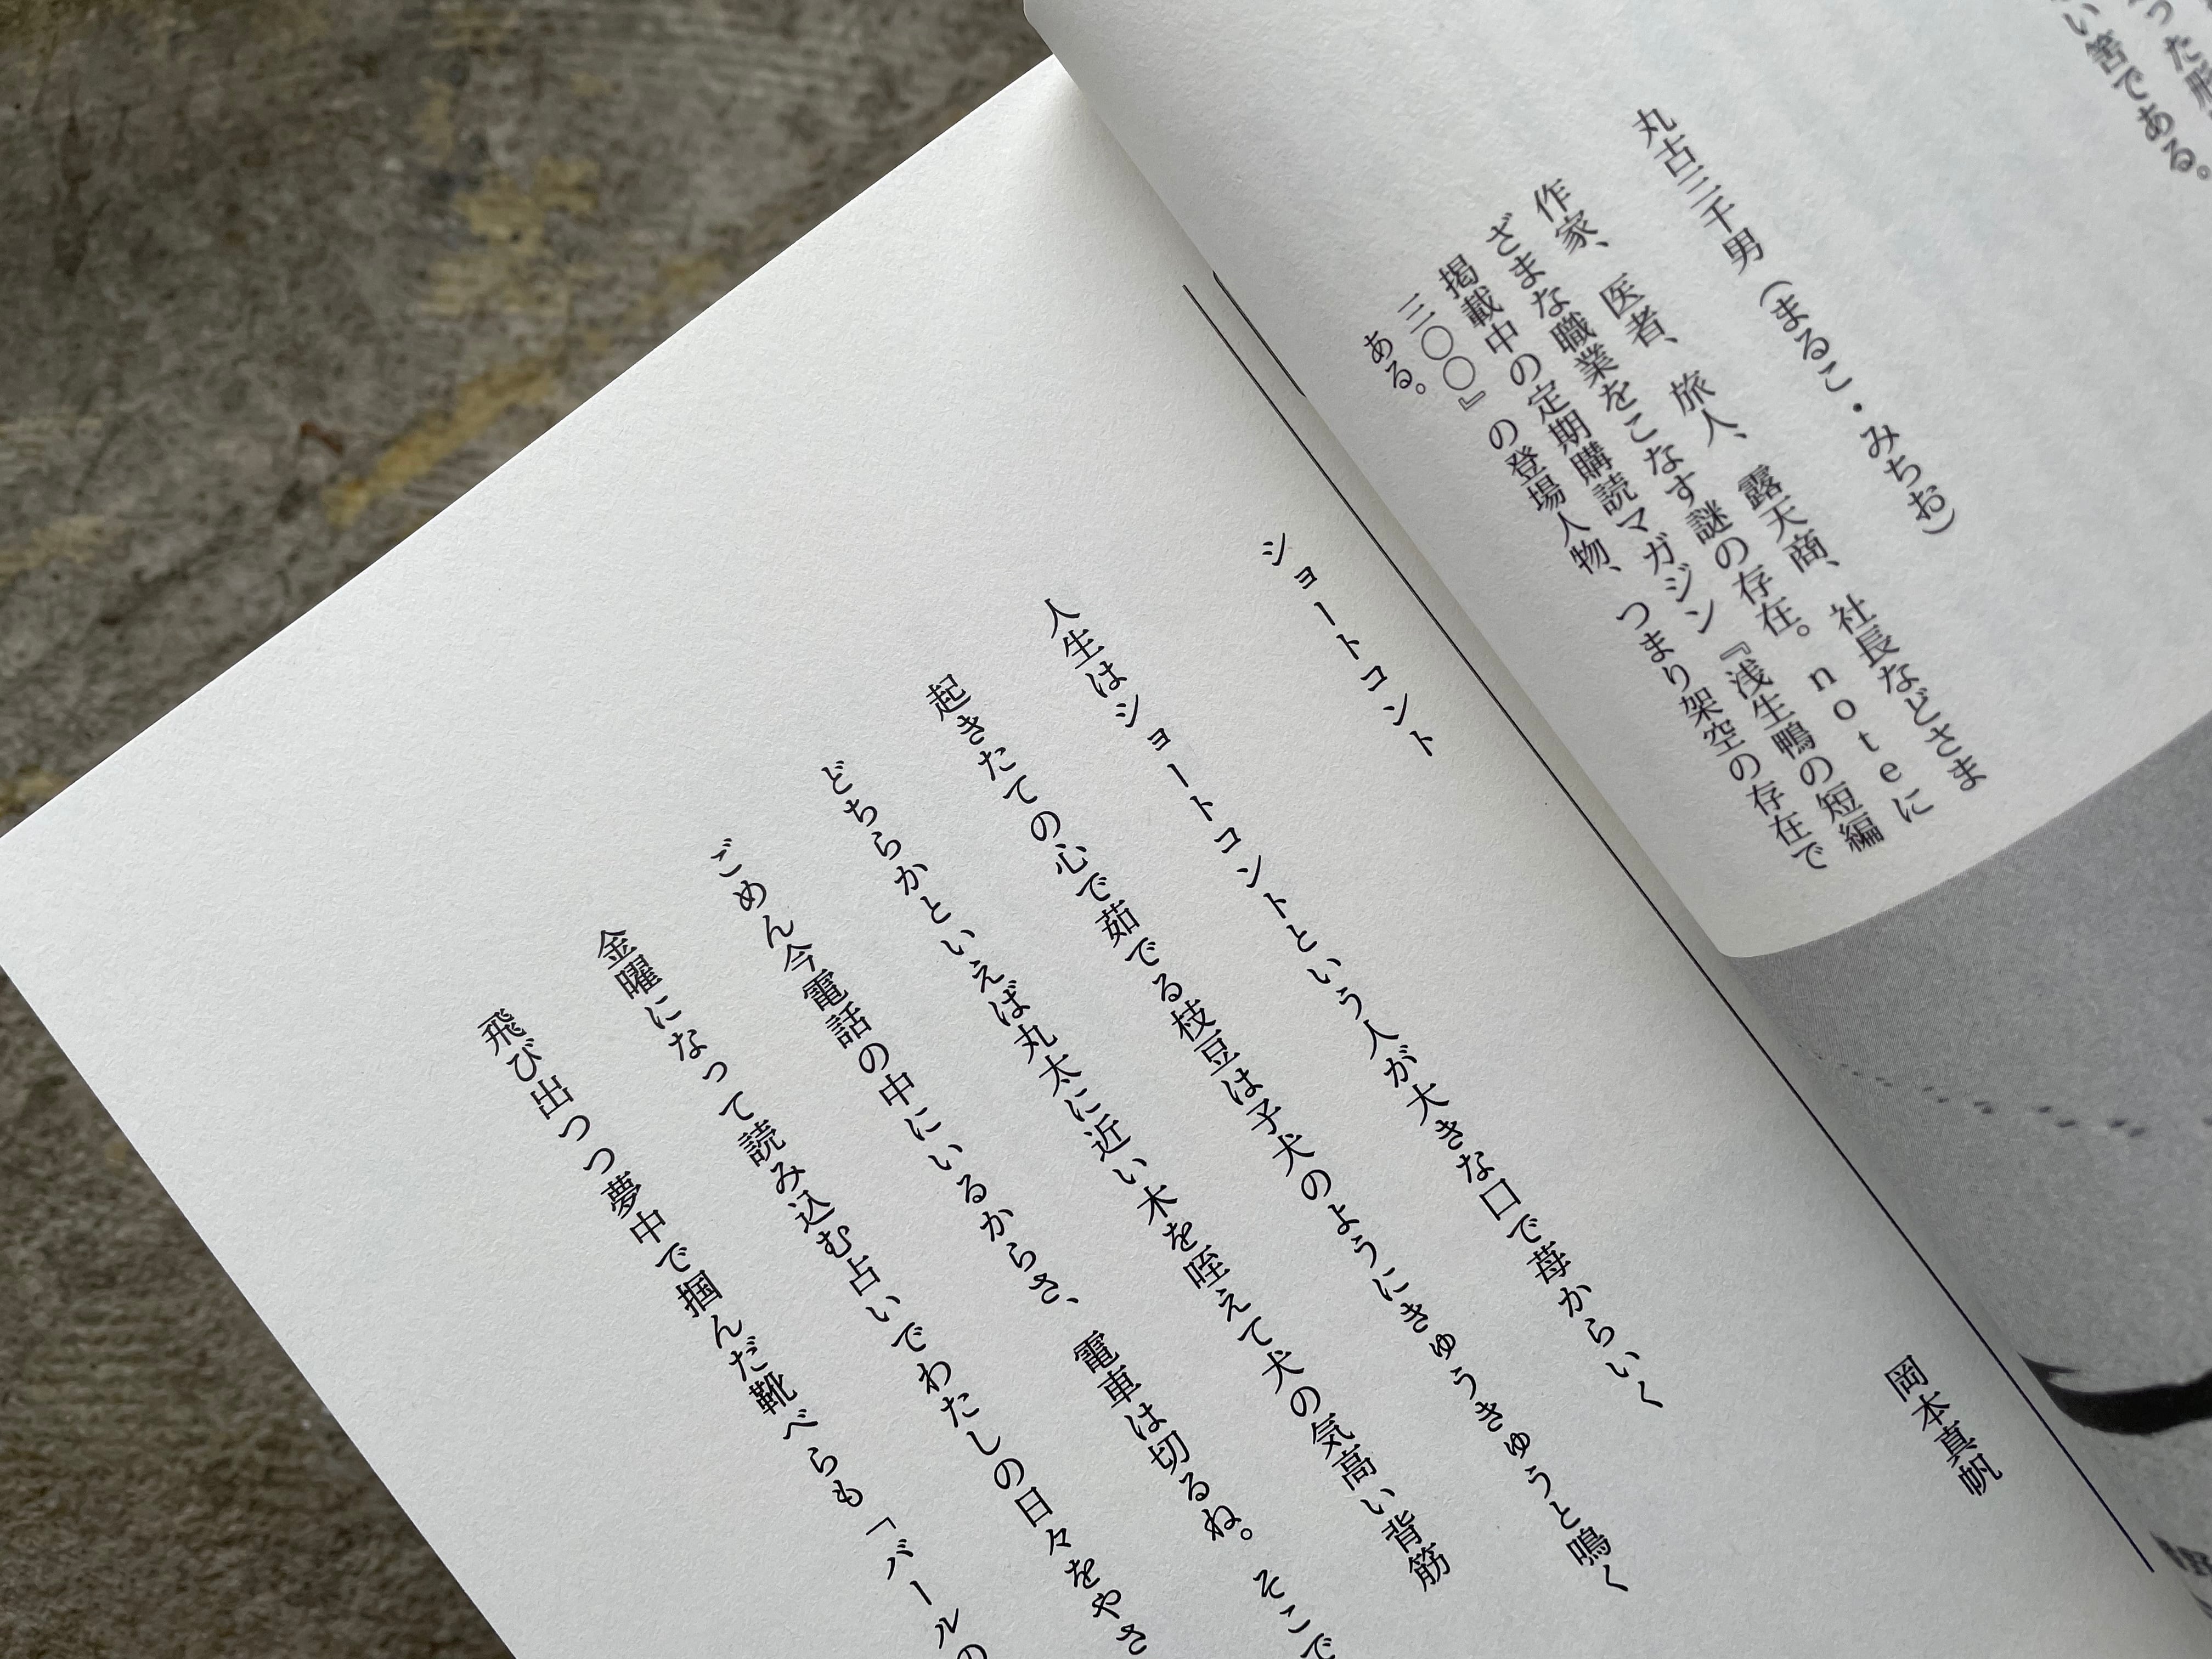 い筈である。
丸古三千男（まるこ・みちお）
作家、医者、旅人、露天商、社長などさま
ざまな職業をこなす謎の存在。noteに
掲載中の定期購読マガジン『浅生鴨の短編
三〇〇』の登場人物、つまり架空の存在で
ある。
ショートコント
岡本真帆
人生はショートコントという人が大きな口で苺からいく
起きたての心で茹でる枝豆は子犬のようにきゅうきゅうと鳴く
どちらかといえば丸太に近い木を咥えて犬の気高い背筋
ごめん今電話の中にいるからさ、電車は切るね。そこで
金曜になって読み込む占いでわたしの日々をやさ
飛び出つつ夢中で掴んだ靴べらも「バールの